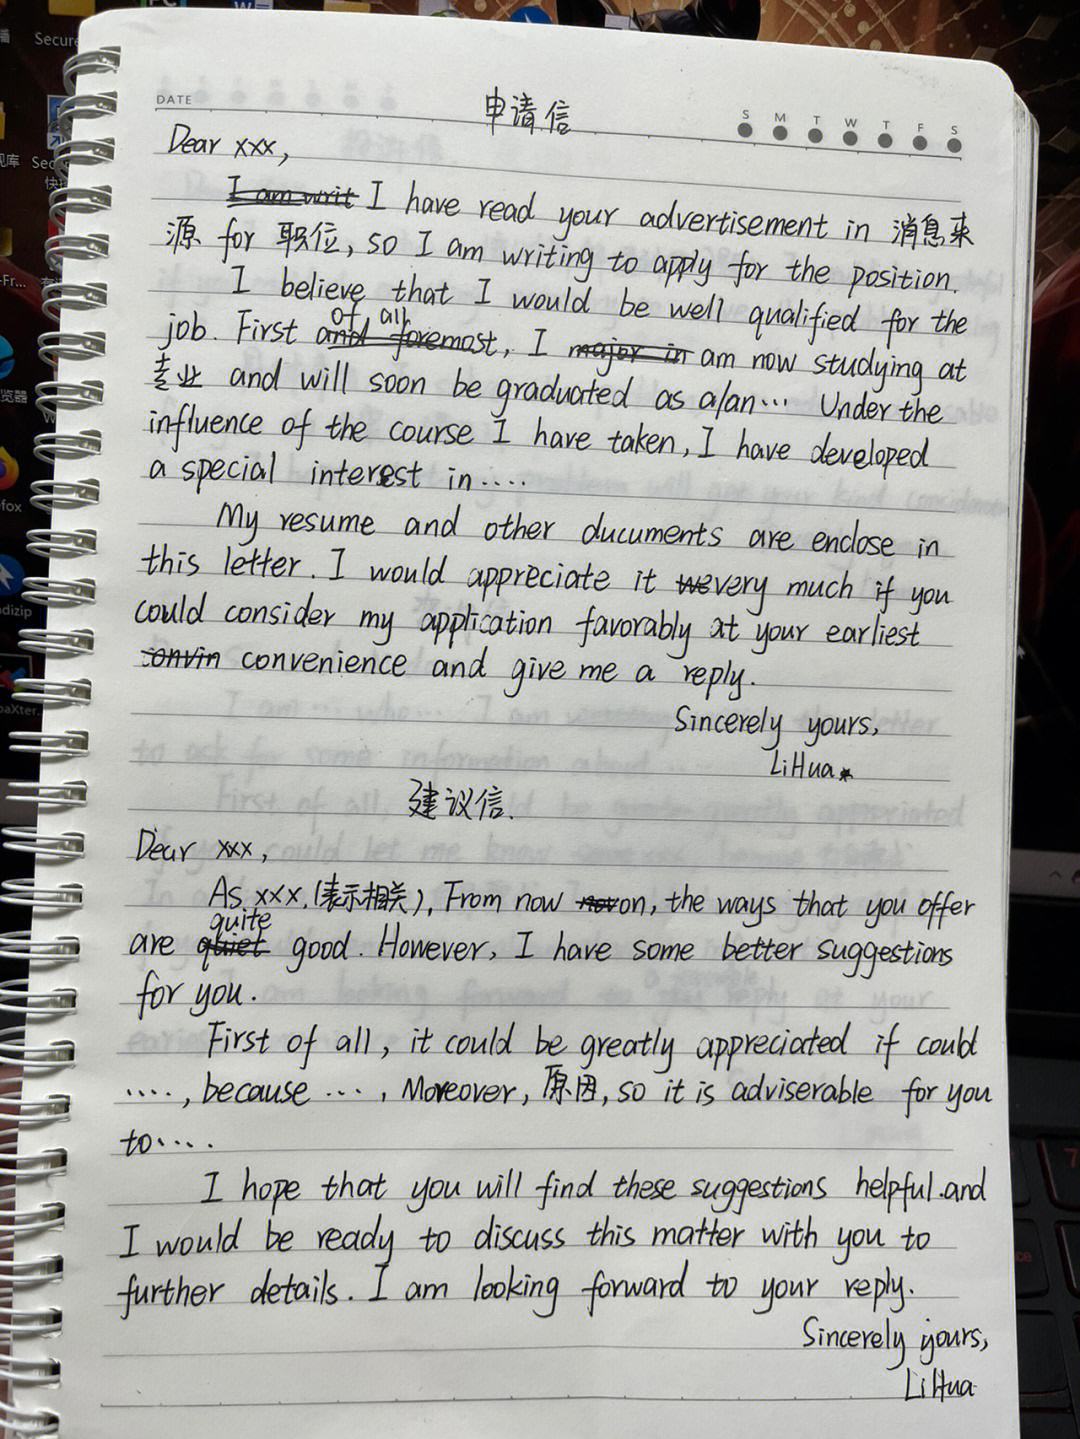 DATE
申请信
S M T W T F S
Dear xxx,
I am writ I have read your advertisement in 消息来
源 for 职位, so I am writing to apply for the position.
I believe that I would be well qualified for the
of all
job. First and foremost, I major in am now studying at
专业 and will soon be graduated as a/an... Under the
influence of the course I have taken, I have developed
a special interest in....
My resume and other ducuments are enclose in
this letter. I would appreciate it we very much if you
could consider my application favorably at your earliest
convin convenience and give me a reply.
Sincerely yours,
LiHua.
建议信.
Dear xxx,
As xxx, (表示相关), From now on, the ways that you offer
quite
are quiet good. However, I have some better suggestions
for you.
First of all, it could be greatly appreciated if could
...., because ..., Moreover, 原因, so it is adviserable for you
to....
I hope that you will find these suggestions helpful.and
I would be ready to discuss this matter with you to
further details. I am looking forward to your reply.
Sincerely yours,
LiHua